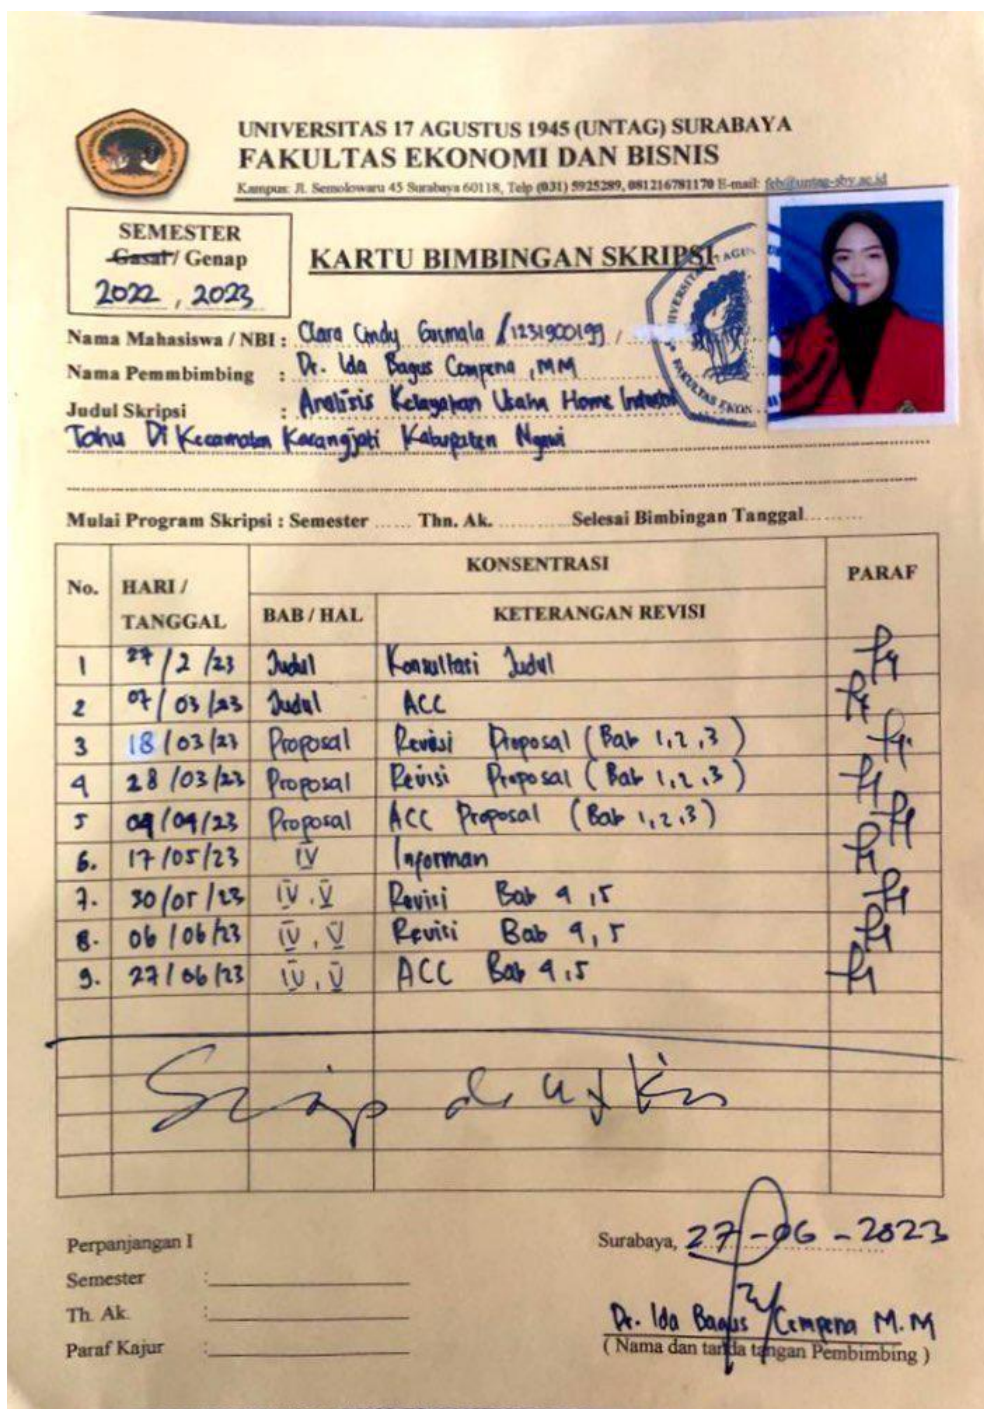 UNIVERSITAS 17 AGUSTUS 1945 (UNTAG) SURABAYA
FAKULTAS EKONOMI DAN BISNIS
Kampus: Jl. Semolowaru 45 Surabaya 60118, Telp (031) 5925289, 081216781170 E-mail: feb@untag-sby.ac.id
SEMESTER
Gasal / Genap
2022, 2023
KARTU BIMBINGAN SKRIPSI
Nama Mahasiswa / NBI : Clara Cindy / 1231900199 /
Nama Pemmbimbing : Dr. Ida Bagus Cempena, MM
Judul Skripsi : Analisis Kelayakan Usaha Home Industri
Tahu Di Kecamatan Karangjati Kabupaten Ngawi
Mulai Program Skripsi : Semester ...... Thn. Ak. .......... Selesai Bimbingan Tanggal..........
No. HARI / TANGGAL KONSENTRASI PARAF
BAB / HAL KETERANGAN REVISI
1 27/2/23 Judul Konsultasi Judul
2 07/03/23 Judul ACC
3 18/03/23 Proposal Revisi Proposal (Bab 1,2,3)
4 28/03/23 Proposal Revisi Proposal (Bab 1,2,3)
5 04/04/23 Proposal ACC Proposal (Bab 1,2,3)
6. 17/05/23 IV Informan
7. 30/05/23 IV, V Revisi Bab 4,5
8. 06/06/23 IV, V Revisi Bab 4,5
9. 27/06/23 IV, V ACC Bab 4,5
Siap di ujikan
Perpanjangan I
Semester :
Th. Ak. :
Paraf Kajur :
Surabaya, 27-06-2023
Dr. Ida Bagus Cempena M.M
( Nama dan tanda tangan Pembimbing )